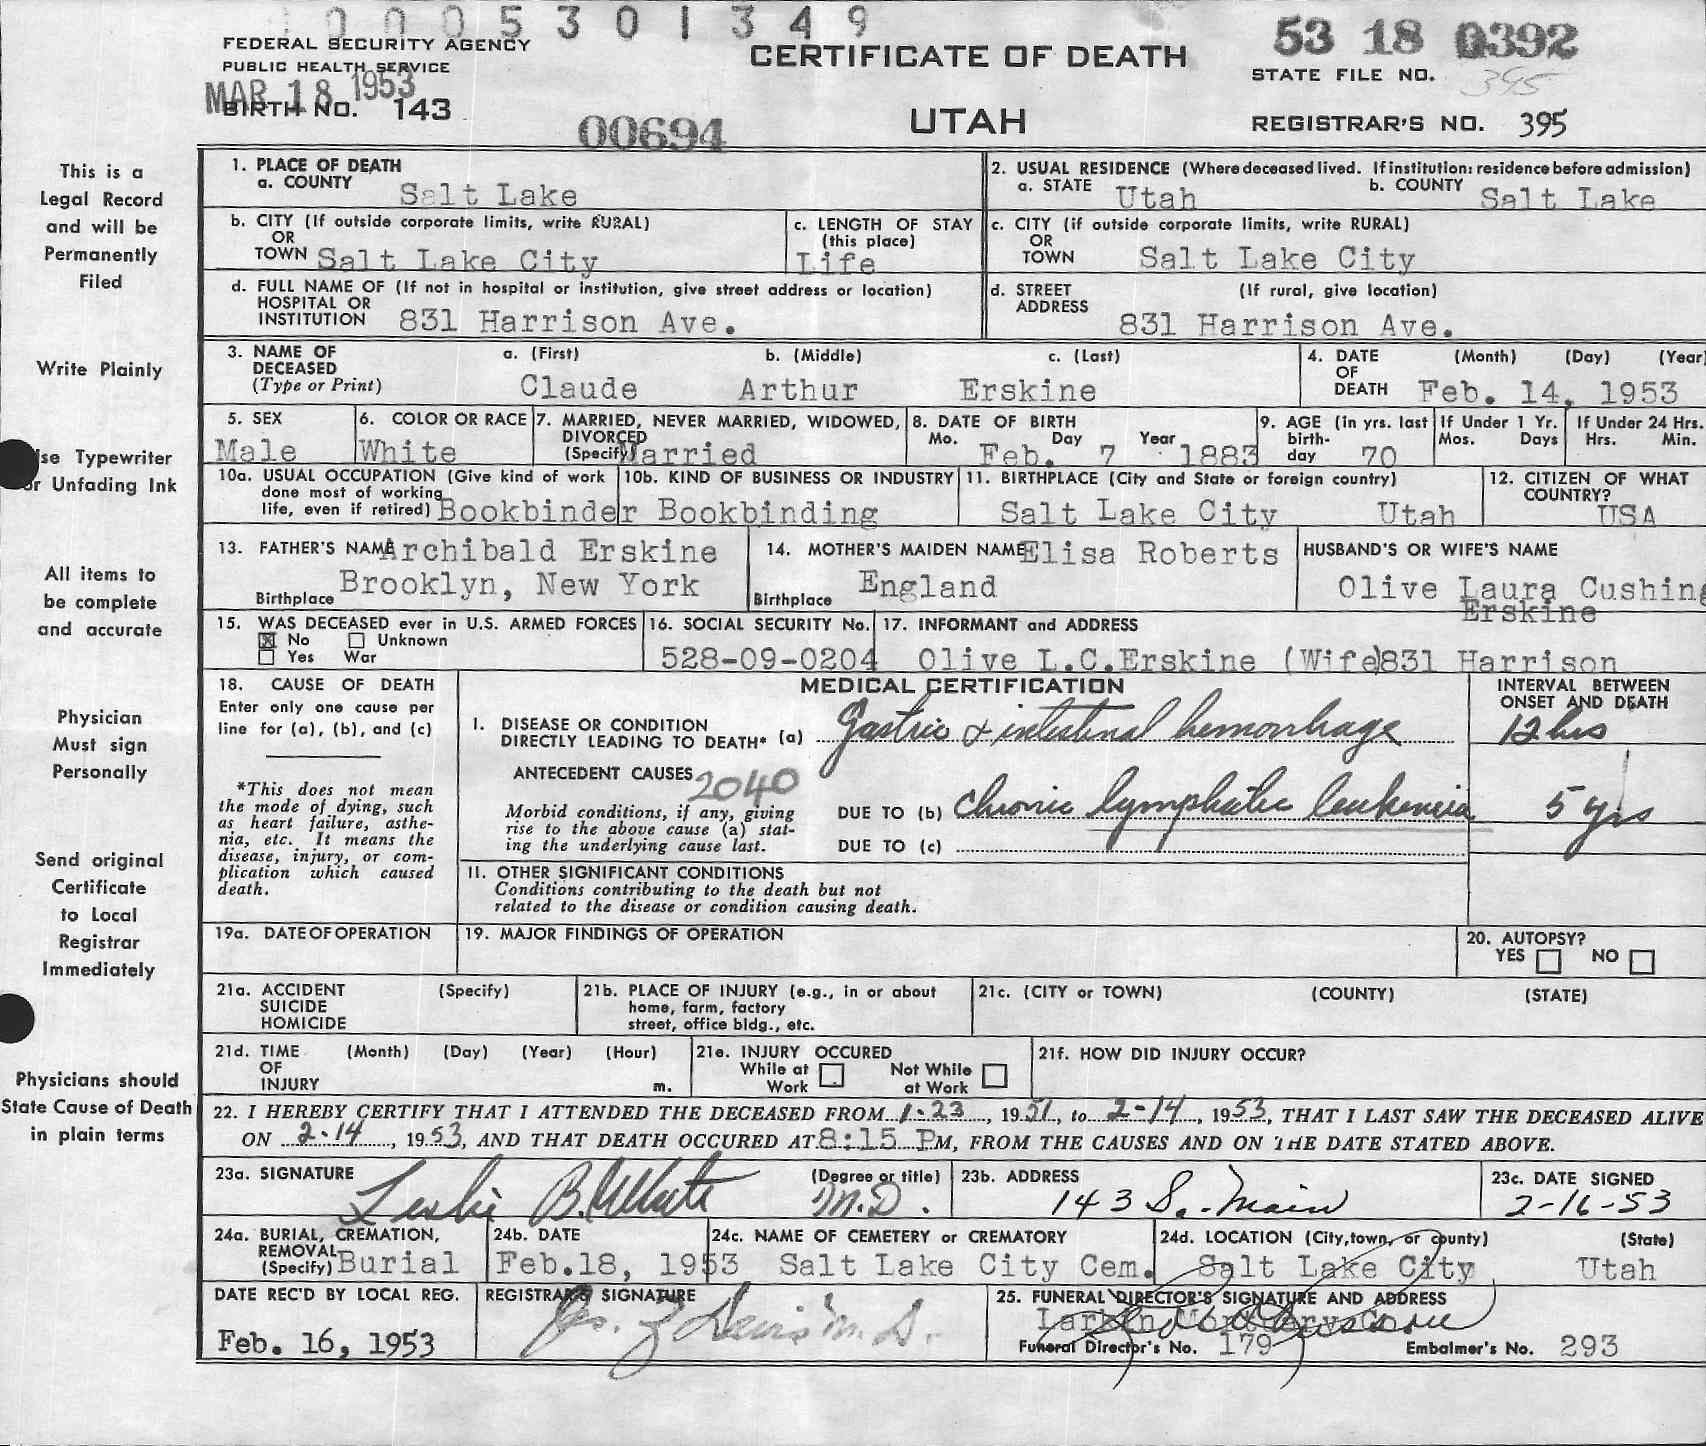 1 0 0 0 5 3 0 1 3 4 9
FEDERAL SECURITY AGENCY
PUBLIC HEALTH SERVICE
MAR 18 1953
BIRTH NO. 143
00694
CERTIFICATE OF DEATH
UTAH
53 18 0392
STATE FILE NO.
395
REGISTRAR'S NO. 395
This is a
Legal Record
and will be
Permanently
Filed
Write Plainly
se Typewriter
or Unfading Ink
All items to
be complete
and accurate
Physician
Must sign
Personally
Send original
Certificate
to Local
Registrar
Immediately
Physicians should
State Cause of Death
in plain terms
1. PLACE OF DEATH
a. COUNTY Salt Lake
2. USUAL RESIDENCE (Where deceased lived. If institution: residence before admission)
a. STATE Utah b. COUNTY Salt Lake
b. CITY (If outside corporate limits, write RURAL)
OR
TOWN Salt Lake City
c. LENGTH OF STAY
(this place)
Life
c. CITY (if outside corporate limits, write RURAL)
OR
TOWN Salt Lake City
d. FULL NAME OF (If not in hospital or institution, give street address or location)
HOSPITAL OR
INSTITUTION 831 Harrison Ave.
d. STREET (If rural, give location)
ADDRESS
831 Harrison Ave.
3. NAME OF a. (First) b. (Middle) c. (Last)
DECEASED
(Type or Print) Claude Arthur Erskine
4. DATE (Month) (Day) (Year)
OF
DEATH Feb. 14, 1953
5. SEX
Male
6. COLOR OR RACE
White
7. MARRIED, NEVER MARRIED, WIDOWED,
DIVORCED
(Specify) Married
8. DATE OF BIRTH
Mo. Day Year
Feb. 7 1883
9. AGE (in yrs. last
birth-
day 70
If Under 1 Yr.
Mos. Days
If Under 24 Hrs.
Hrs. Min.
10a. USUAL OCCUPATION (Give kind of work
done most of working
life, even if retired) Bookbinder
10b. KIND OF BUSINESS OR INDUSTRY
Bookbinding
11. BIRTHPLACE (City and State or foreign country)
Salt Lake City Utah
12. CITIZEN OF WHAT
COUNTRY?
USA
13. FATHER'S NAME Archibald Erskine
Birthplace Brooklyn, New York
14. MOTHER'S MAIDEN NAME Elisa Roberts
Birthplace England
HUSBAND'S OR WIFE'S NAME
Olive Laura Cushing
Erskine
15. WAS DECEASED ever in U.S. ARMED FORCES
No Unknown
Yes War
16. SOCIAL SECURITY No.
528-09-0204
17. INFORMANT and ADDRESS
Olive L.C.Erskine (Wife)831 Harrison
18. CAUSE OF DEATH
Enter only one cause per
line for (a), (b), and (c)
*This does not mean
the mode of dying, such
as heart failure, asthe-
nia, etc. It means the
disease, injury, or com-
plication which caused
death.
MEDICAL CERTIFICATION
INTERVAL BETWEEN
ONSET AND DEATH
I. DISEASE OR CONDITION
DIRECTLY LEADING TO DEATH* (a) Gastric & intestinal hemorrhage 12 hrs
ANTECEDENT CAUSES 2040
Morbid conditions, if any, giving
rise to the above cause (a) stat-
ing the underlying cause last.
DUE TO (b) Chronic lymphatic leukemia 5 yrs
DUE TO (c)
II. OTHER SIGNIFICANT CONDITIONS
Conditions contributing to the death but not
related to the disease or condition causing death.
19a. DATE OF OPERATION
19. MAJOR FINDINGS OF OPERATION
20. AUTOPSY?
YES NO
21a. ACCIDENT (Specify)
SUICIDE
HOMICIDE
21b. PLACE OF INJURY (e.g., in or about
home, farm, factory
street, office bldg., etc.
21c. (CITY or TOWN) (COUNTY) (STATE)
21d. TIME (Month) (Day) (Year) (Hour)
OF
INJURY m.
21e. INJURY OCCURED
While at Not While
Work at Work
21f. HOW DID INJURY OCCUR?
22. I HEREBY CERTIFY THAT I ATTENDED THE DECEASED FROM 1-23, 1951, to 2-14, 1953, THAT I LAST SAW THE DECEASED ALIVE
ON 2-14, 1953, AND THAT DEATH OCCURED AT 8:15 PM, FROM THE CAUSES AND ON THE DATE STATED ABOVE.
23a. SIGNATURE (Degree or title)
Leslie B. White M.D.
23b. ADDRESS
143 S. Main
23c. DATE SIGNED
2-16-53
24a. BURIAL, CREMATION,
REMOVAL
(Specify) Burial
24b. DATE
Feb.18, 1953
24c. NAME OF CEMETERY or CREMATORY
Salt Lake City Cem.
24d. LOCATION (City, town, or county) (State)
Salt Lake City Utah
DATE REC'D BY LOCAL REG.
Feb. 16, 1953
REGISTRAR'S SIGNATURE
M.D.
25. FUNERAL DIRECTOR'S SIGNATURE AND ADDRESS
Larkin Mortuary Co.
Funeral Director's No. 179 Embalmer's No. 293